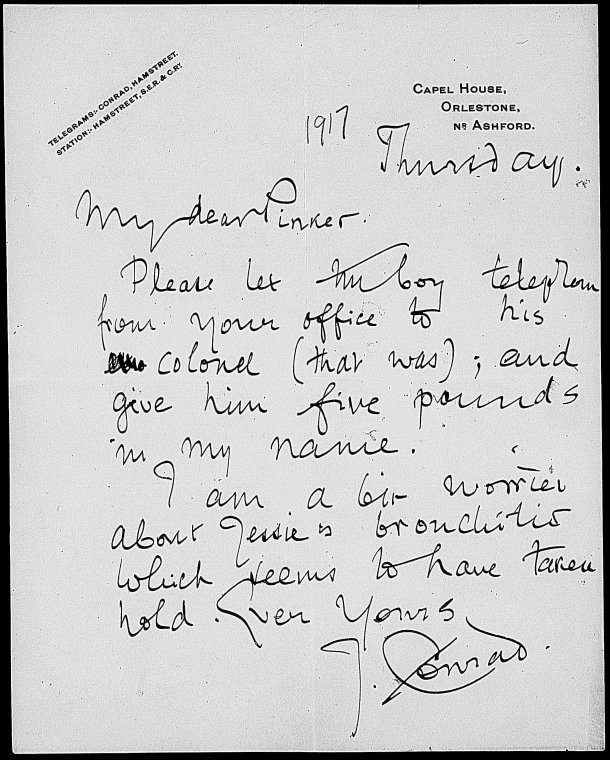 TELEGRAMS:- CONRAD, HAMSTREET.
STATION:- HAMSTREET, S.E.R. & C.RY.
CAPEL HOUSE,
ORLESTONE,
NR ASHFORD.
1917
Thursday.
My dear Pinker.
Please let the boy telephone
from your office to his
colonel (that was); and
give him five pounds
in my name.
I am a bit worried
about Jessie's bronchitis
which seems to have taken
hold. Ever Yours
J. Conrad.